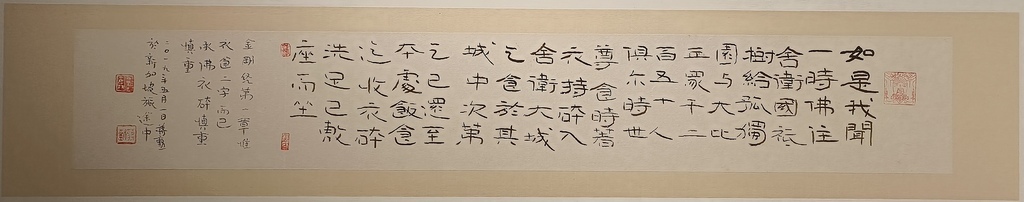 如是我聞
一時佛住
舍衛國祇
樹給孤獨
園与大比
丘眾千二
百五十人
俱尔時世
尊食時著
衣持砵入
舍衛大城
乞食於其
城中次第
乞已還至
本處飯食
讫收衣砵
洗足已敷
座而坐
金剛經第一章唯
衣食二字而已
求佛衣砵慎重
慎重
二〇一九年五月一日
於新加坡旅途中